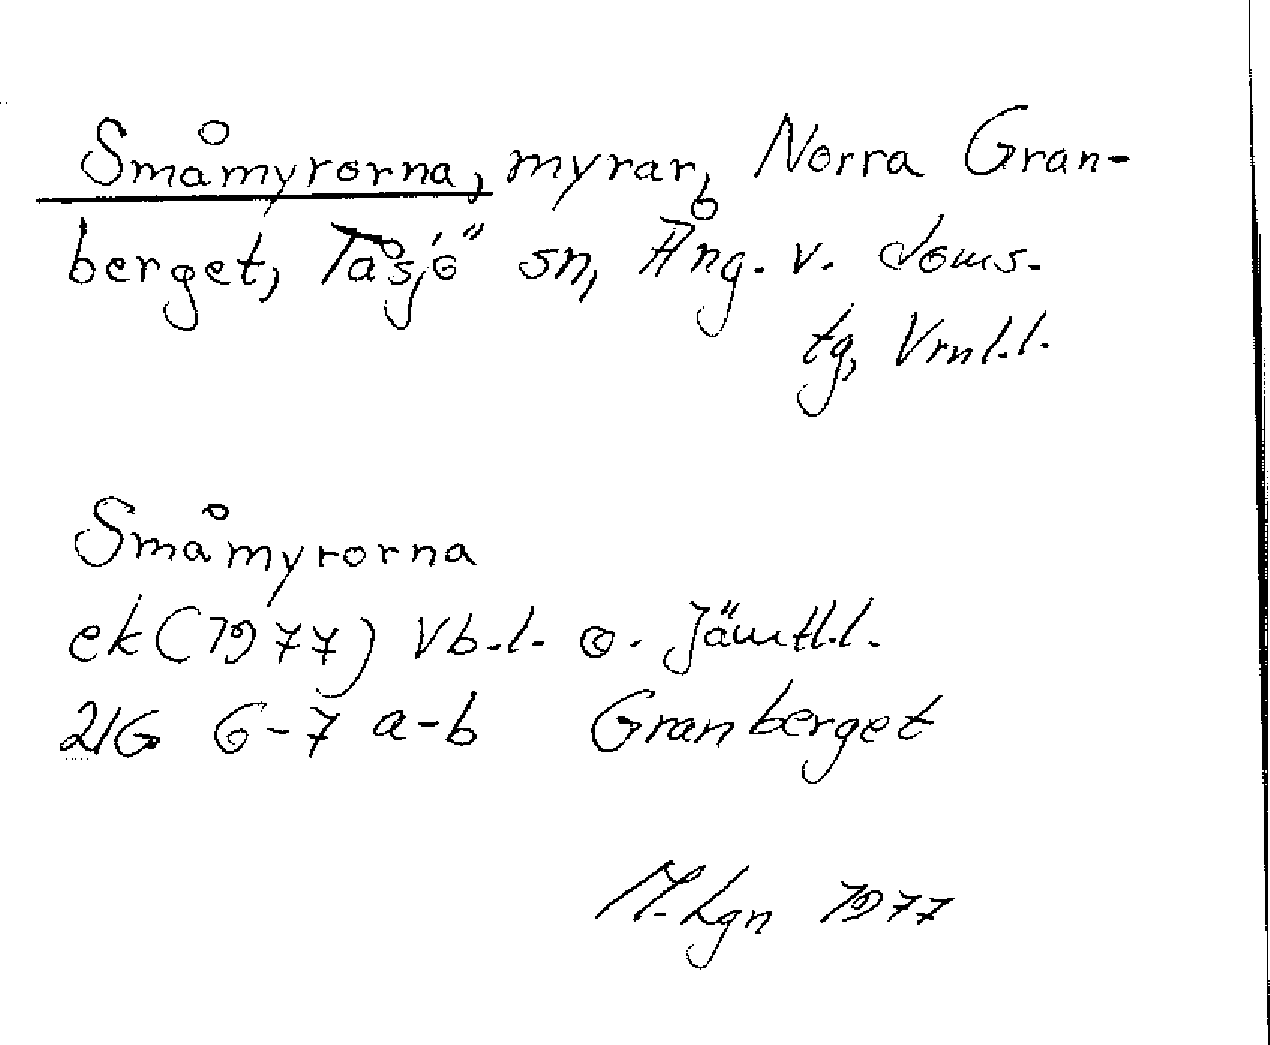 Småmyrorna, myrar, Norra Gran-
berget, Tåsjö sn, Ång. v. doms.
tg, Vrnl.l.
Småmyrorna
ek (1977) Vb.l. o. Jämtl.l.
21G 6-7 a-b Granberget
M. Lgn 1977